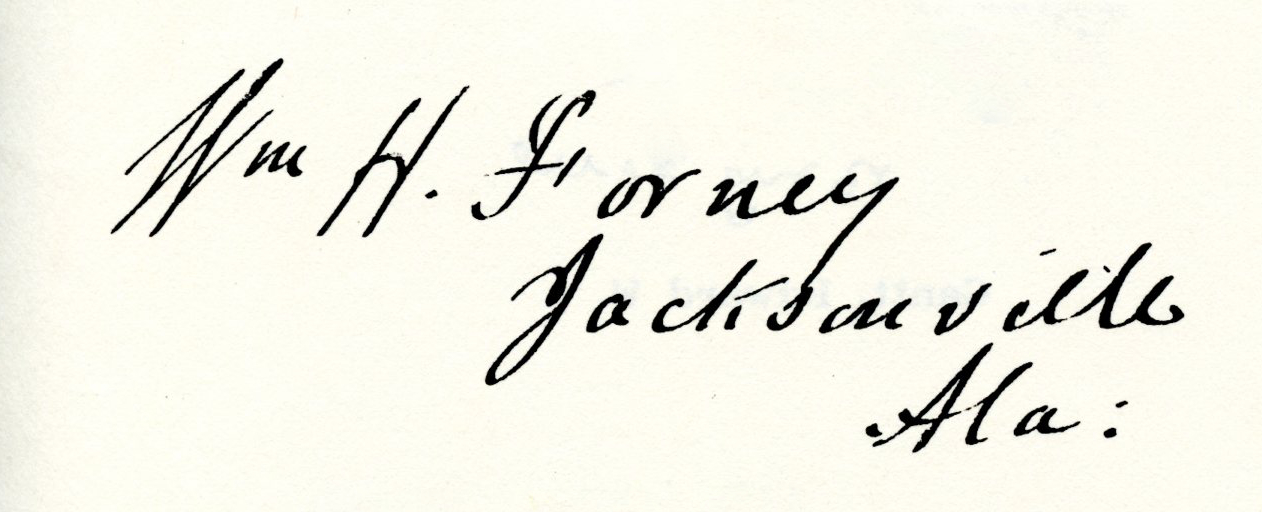 Wm H. Forney
Jacksonville
Ala: